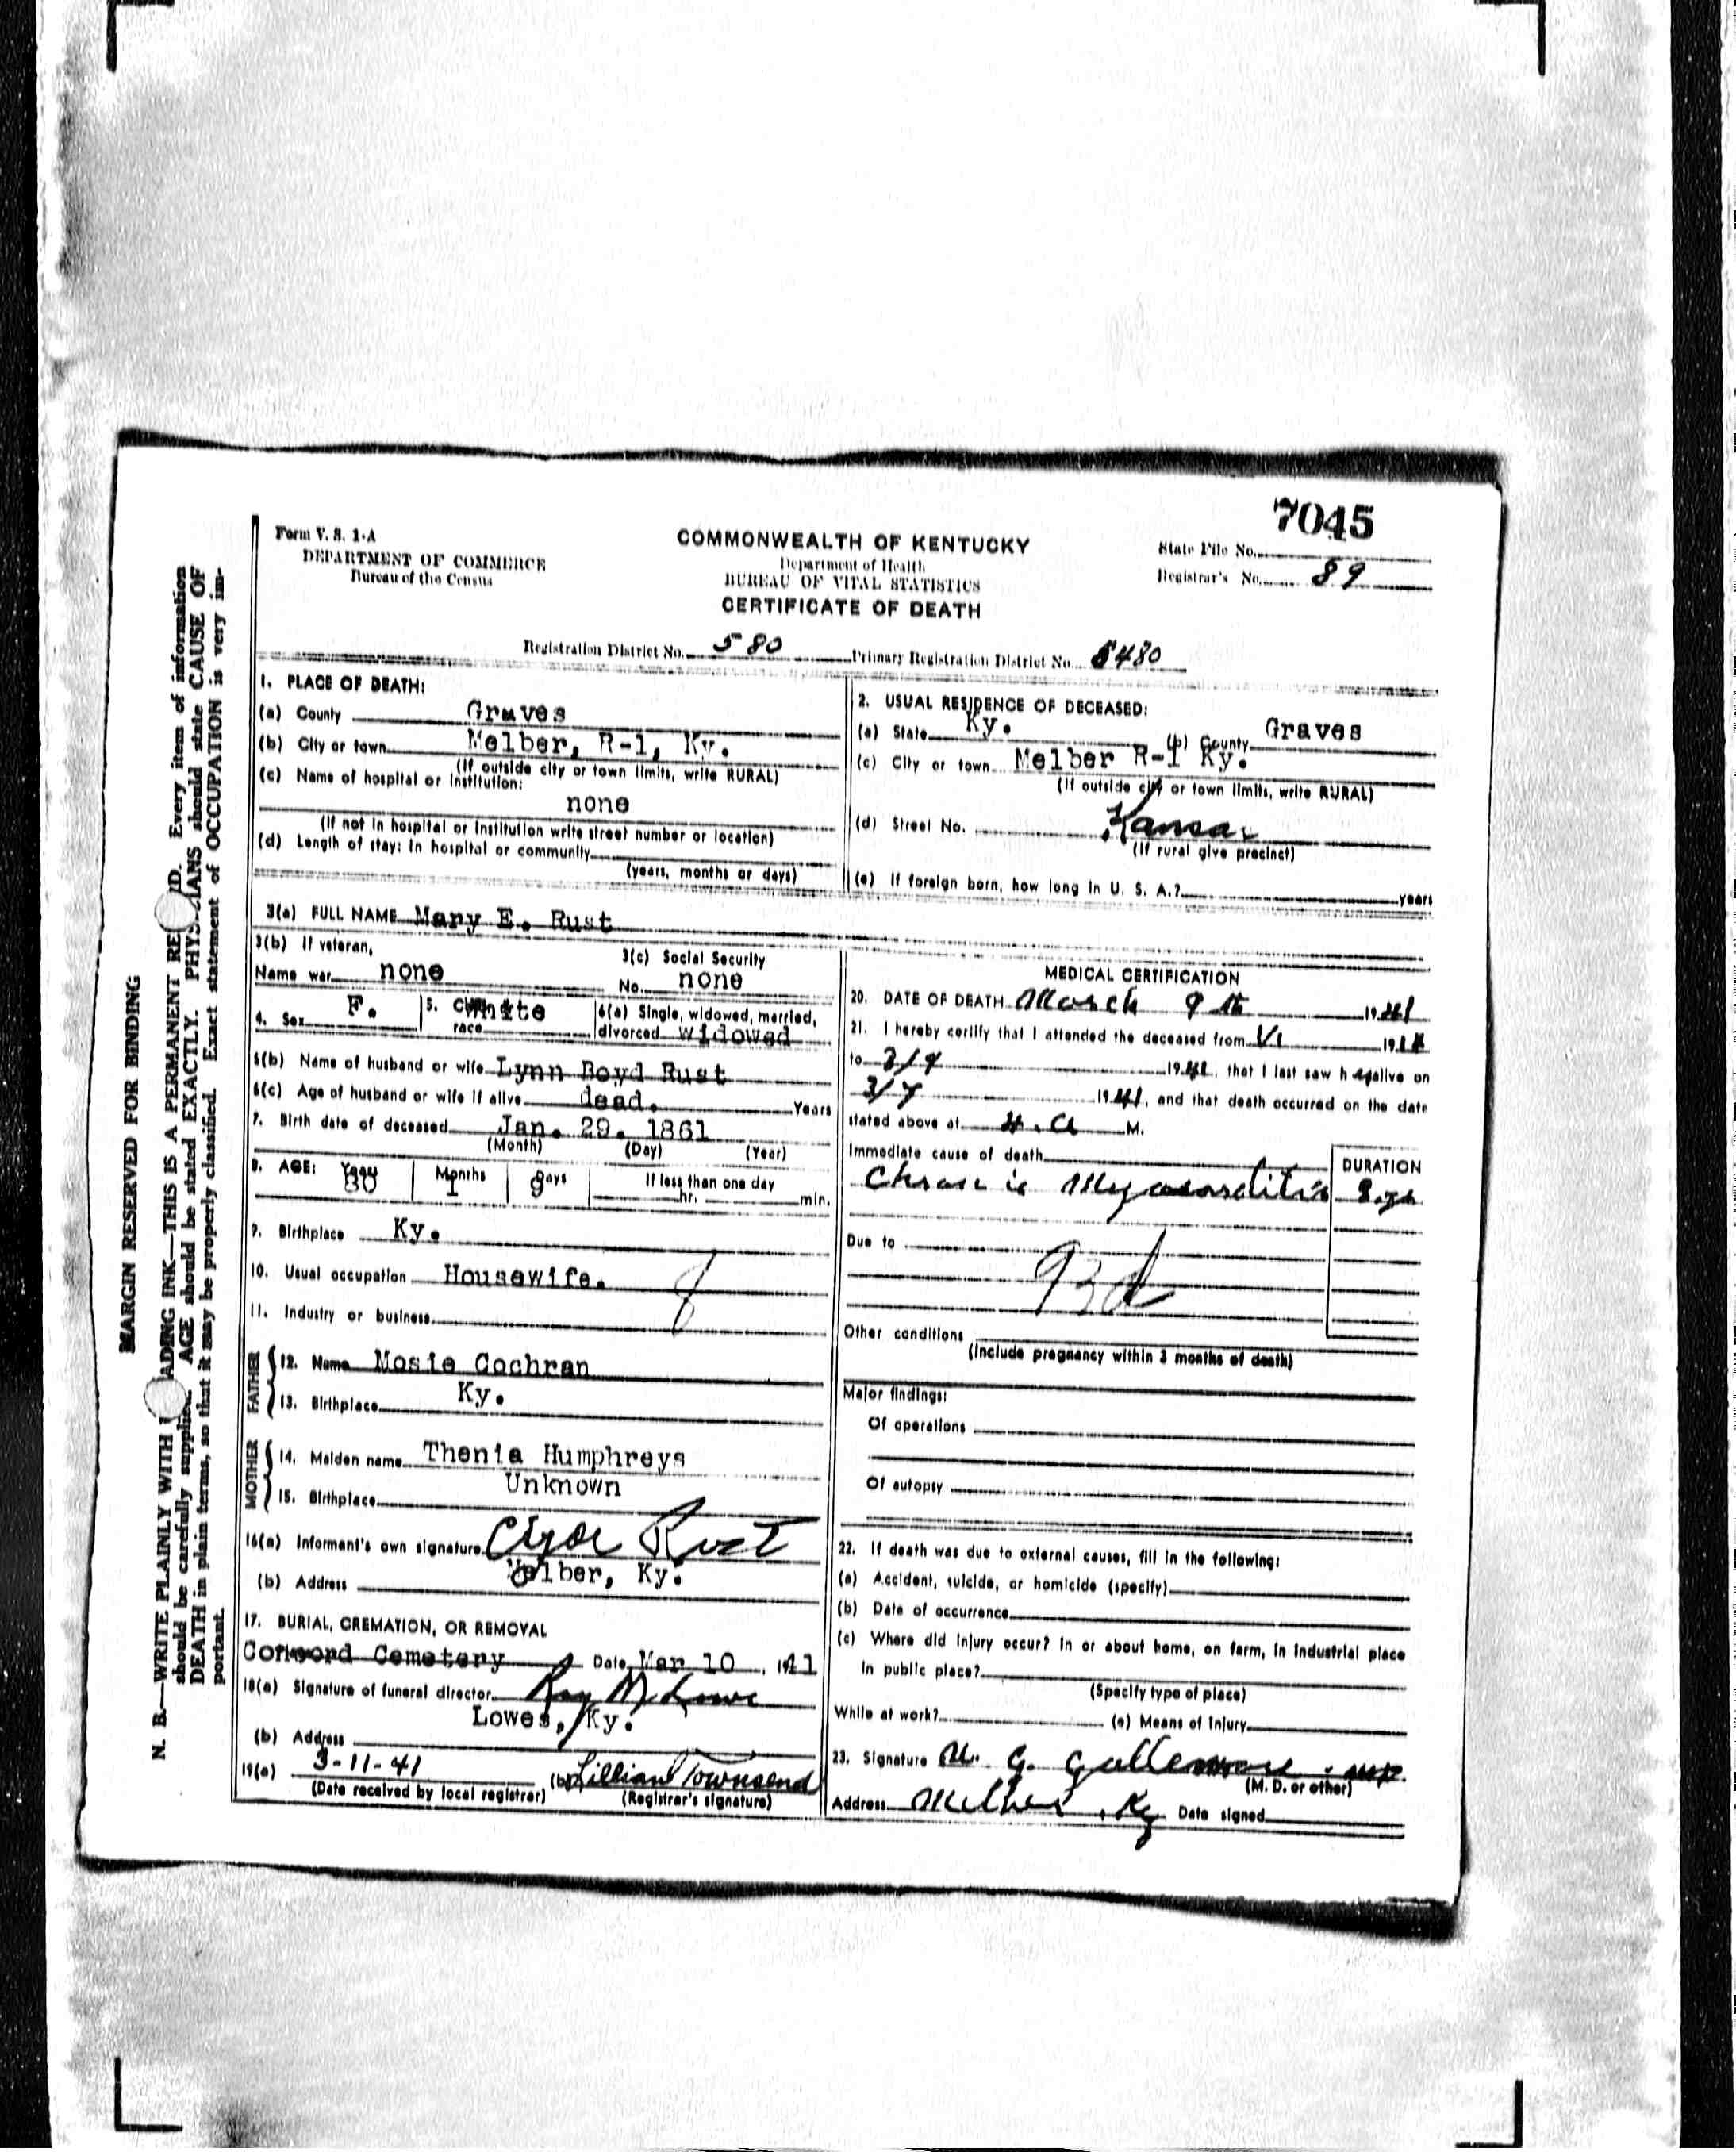 7045
Form V. S. 1-A
DEPARTMENT OF COMMERCE
Bureau of the Census
COMMONWEALTH OF KENTUCKY
Department of Health
BUREAU OF VITAL STATISTICS
CERTIFICATE OF DEATH
State File No.
Registrar's No. 89
Registration District No. 580 Primary Registration District No. 5480
1. PLACE OF DEATH:
(a) County Graves
(b) City or town Melber, R-1, Ky.
(If outside city or town limits, write RURAL)
(c) Name of hospital or institution:
none
(If not in hospital or institution write street number or location)
(d) Length of stay: In hospital or community
(years, months or days)
2. USUAL RESIDENCE OF DECEASED:
(a) State Ky. (b) County Graves
(c) City or town Melber R-1 Ky.
(If outside city or town limits, write RURAL)
(d) Street No. Kansas
(If rural give precinct)
(e) If foreign born, how long in U. S. A.? years
3(a) FULL NAME Mary E. Rust
3(b) If veteran,
Name war none
3(c) Social Security
No. none
4. Sex F. 5. White
race
6(a) Single, widowed, married,
divorced widowed
6(b) Name of husband or wife Lynn Boyd Rust
6(c) Age of husband or wife if alive dead. Years
7. Birth date of deceased Jan. 29. 1861
(Month) (Day) (Year)
8. AGE: Years 80 Months 1 Days 9 If less than one day
hr. min.
9. Birthplace Ky.
10. Usual occupation Housewife.
11. Industry or business
FATHER
12. Name Mosie Cochran
13. Birthplace Ky.
MOTHER
14. Maiden name Thenia Humphreys
15. Birthplace Unknown
16(a) Informant's own signature Clyde Rust
(b) Address Melber, Ky.
17. BURIAL, CREMATION, OR REMOVAL
Cemetery Date Mar 10, 1941
18(a) Signature of funeral director Roy M. Lowe
(b) Address Lowes, Ky.
19(a) 3-11-41 (b) Lillian Townsend
(Date received by local registrar) (Registrar's signature)
MEDICAL CERTIFICATION
20. DATE OF DEATH March 9th 1941
21. I hereby certify that I attended the deceased from
to 3/9 1941, that I last saw h alive on
3/7 1941, and that death occurred on the date
stated above at 4. a M.
Immediate cause of death DURATION
Chronic Myocarditis
Due to
93d
Other conditions
(Include pregnancy within 3 months of death)
Major findings:
Of operations
Of autopsy
22. If death was due to external causes, fill in the following:
(a) Accident, suicide, or homicide (specify)
(b) Date of occurrence
(c) Where did injury occur? In or about home, on farm, in industrial place
in public place?
(Specify type of place)
While at work? (e) Means of injury
23. Signature
(M. D. or other)
Address Melber, Ky Date signed
MARGIN RESERVED FOR BINDING
N. B.—WRITE PLAINLY WITH ADING INK—THIS IS A PERMANENT RE D. Every item of information
should be carefully supplie. AGE should be stated EXACTLY. PHYSICIANS should state CAUSE OF
DEATH in plain terms, so that it may be properly classified. Exact statement of OCCUPATION is very im-
portant.